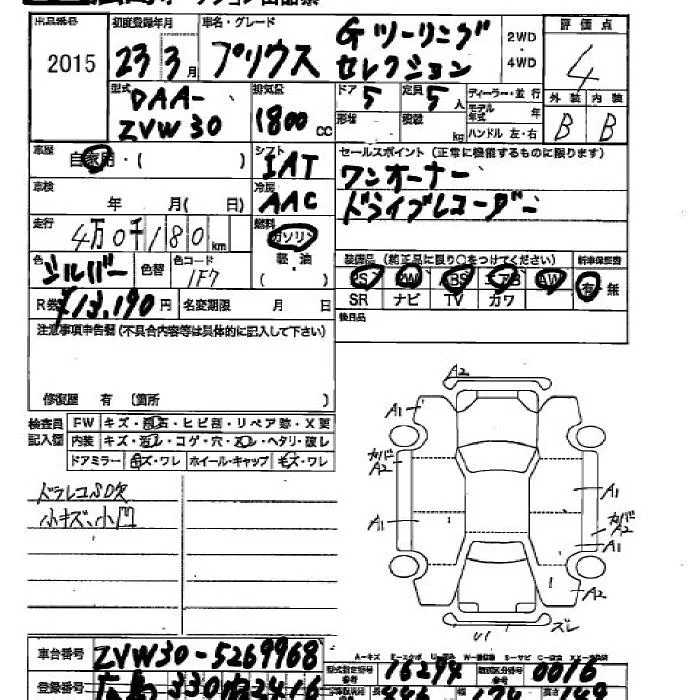 出品番号
2015
初度登録年月
23 3 月
車名・グレード
プリウス
Gツーリング
セレクション
2WD
・
4WD
評価点
4
外装 内装
B B
型式
DAA-
ZVW30
排気量
1800 cc
ドア
5
定員
5 人
形状
積載
kg
ディーラー・並行
モデル年式 年
ハンドル 左・右
車歴
自家用・( )
シフト
IAT
車検
年 月( 日)
冷房
AAC
セールスポイント (正常に機能するものに限ります)
ワンオーナー
ドライブレコーダー
走行
4万0千180 km
燃料
ガソリン
軽・油
( )
色
シルバー
色替
色コード
1F7
装備品 (純正品に限り○をつけてください)
新車保証書
PS PW ABS エアB AW
SR ナビ TV カワ
有・無
R券
¥13,190 円
名変期限 月 日
後日品
注意事項申告書 (不具合内容等は具体的に記入して下さい)
修復歴 有 (箇所 )
検査員
記入欄
FW キズ・飛石・ヒビ割・リペア跡・X要
内装 キズ・汚レ・コゲ・穴・スレ・ヘタリ・破レ
ドアミラー キズ・ワレ ホイール・キャップ キズ・ワレ
ドラレコSD欠
小キズ、小凹
A2
A1
カバ
A2
A1
A1
カバ
A2
A1
A2
U1
ズレ
車台番号
ZVW30-5269968
型式指定番号
16294
類別区分番号
0016
登録番号
広島 330
2416